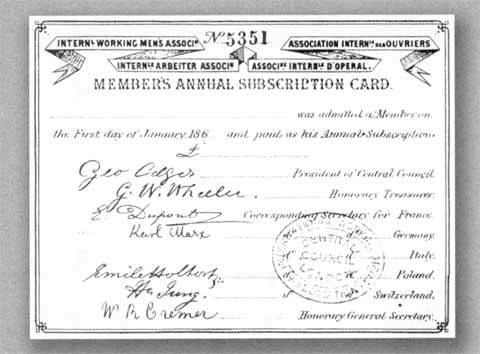 Nº 5351
INTERNL WORKING MEN'S ASSOCIN
ASSOCIATION INTERNLE DES OUVRIERS
INTERNLE ARBEITER ASSOCIN
ASSOCINE INTERNLE D'OPERAI.
MEMBER'S ANNUAL SUBSCRIPTION CARD.
was admitted a Member on
the First day of January 186 and paid as his Annual Subscription
£
Geo Odger President of Central Council.
G. W. Wheeler. Honorary Treasurer.
E. Dupont Corresponding Secretary for France.
Karl Marx dº Germany.
dº Italy.
Emile Holtorp dº Poland.
Hn Jung. dº Switzerland.
W R Cremer Honorary General Secretary.
CENTRAL
COUNCIL
LONDON